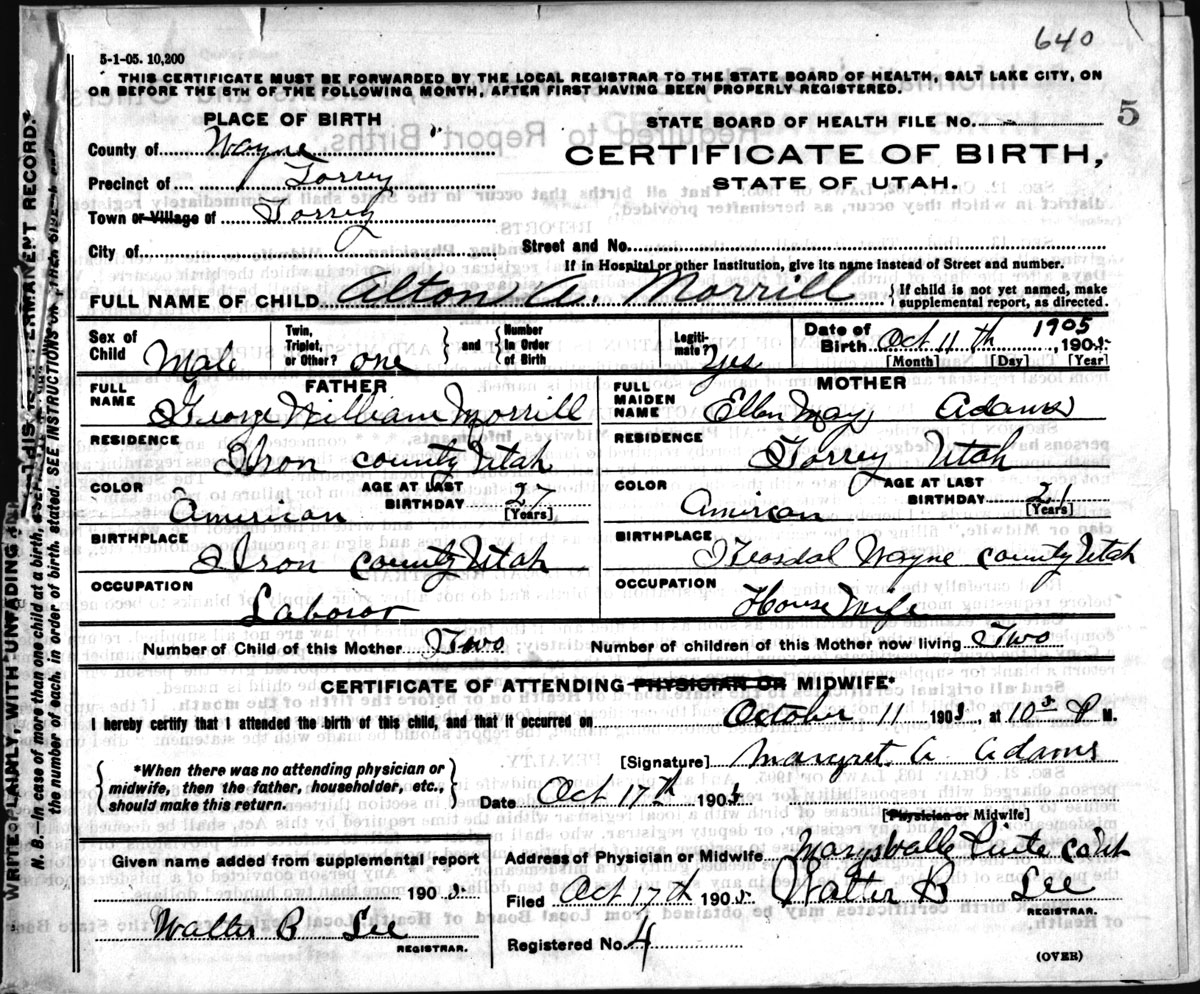 640
5-1-05. 10,200
THIS CERTIFICATE MUST BE FORWARDED BY THE LOCAL REGISTRAR TO THE STATE BOARD OF HEALTH, SALT LAKE CITY, ON
OR BEFORE THE 5TH OF THE FOLLOWING MONTH, AFTER FIRST HAVING BEEN PROPERLY REGISTERED.
PLACE OF BIRTH
STATE BOARD OF HEALTH FILE NO. 5
County of Wayne
CERTIFICATE OF BIRTH,
Precinct of Torrey
STATE OF UTAH.
Town or Village of Torrey
City of
Street and No.
If in Hospital or other Institution, give its name instead of Street and number.
FULL NAME OF CHILD Alton A. Morrill
If child is not yet named, make
supplemental report, as directed.
Sex of
Child Male
Twin,
Triplet,
or Other? one
and
Number
in Order
of Birth
Legiti-
mate? Yes
Date of
Birth Oct 11th 1905 1905
[Month] [Day] [Year]
FULL
NAME
FATHER
George William Morrill
RESIDENCE
Iron county Utah
COLOR
American
AGE AT LAST
BIRTHDAY 27
[Years]
BIRTHPLACE
Iron county Utah
OCCUPATION
Laboror
FULL
MAIDEN
NAME
MOTHER
Ellen May Adams
RESIDENCE
Torrey Utah
COLOR
Amirican
AGE AT LAST
BIRTHDAY 21
[Years]
BIRTHPLACE
Teasdal Wayne county Utah
OCCUPATION
House Wife
Number of Child of this Mother Two
Number of children of this Mother now living Two
CERTIFICATE OF ATTENDING PHYSICIAN OR MIDWIFE*
I hereby certify that I attended the birth of this child, and that it occurred on October 11 1905, at 10 P M.
*When there was no attending physician or
midwife, then the father, householder, etc.,
should make this return.
[Signature] Margret A Adams
Date Oct 17th 1905
[Physician or Midwife]
Given name added from supplemental report
1905
Walter B Lee
REGISTRAR.
Address of Physician or Midwife Marysvalle Piute co Ut
Filed Oct 17th 1905 Walter B Lee
REGISTRAR.
Registered No. 4
(OVER)
WRITE PLAINLY, WITH UNFADING THIS IS A PERMANENT RECORD.
N. B.—In case of more than one child at a birth, a
the number of each, in order of birth, stated. SEE INSTRUCTIONS on